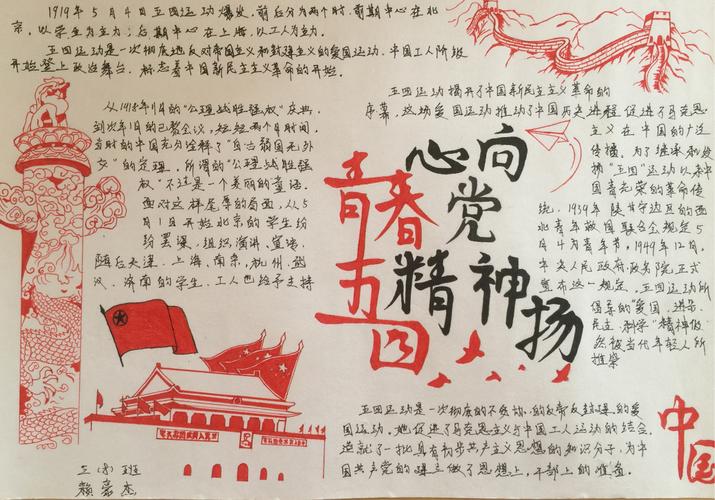 1919年5月4日五四运动爆发,前后分为两个时,前期中心在北
京,以学生为主力;后期中心在上海,以工人为主力.
五四运动是一次彻底地反对帝国主义和封建主义的爱国运动,中国工人阶级
开始登上政治舞台.标志着中国新民主主义革命的开始.
从1918年11月的"公理战胜强权"庆典,
到次年1月的巴黎会议,短短两个月时间,
当时的中国充分诠释了"自古弱国无外
交"的定理,所谓的"公理战胜强
权"不过是一个美丽的童话.
面对这样屈辱的局面,从5
月1日开始北京的学生纷
纷罢课,组织演讲、宣传,
随后天津、上海、南京、杭州、武
汉、济南的学生、工人也给予支持
五四运动揭开了中国新民主主义革命的
序幕,这场爱国运动推动了中国历史进程,促进了马克思
主义在中国的广泛
传播,为了继承和发
扬"五四"运动以来中
国青光荣的革命传
统,1939年陕甘宁边区的西
北青年救国联合会规定5
月4为青年节,1949年12月,
中央人民政府政务院正式
宣布这一规定.五四所
倡导的"爱国、进步、
民主、科学"精神依
然被当代年轻人所
推崇
青春心向党
五四精神扬
五四运动是一次彻底的不妥协的反帝反封建的爱
国运动.她促进了马克思主义与中国工人运动的结合.
造就了一批具有初步共产主义思想的知识分子,为中
国共产党的建立做了思想上,干部上的准备.
中国
三(8)班